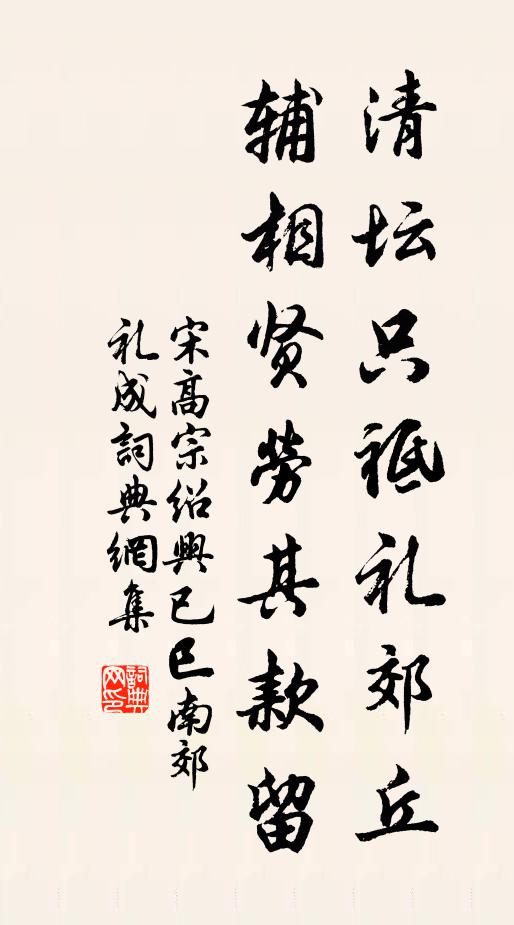 清坛只祗礼郊丘
辅相贤劳其款留
宋高宗绍興已巳南郊
礼成詞典網集
詞典網印